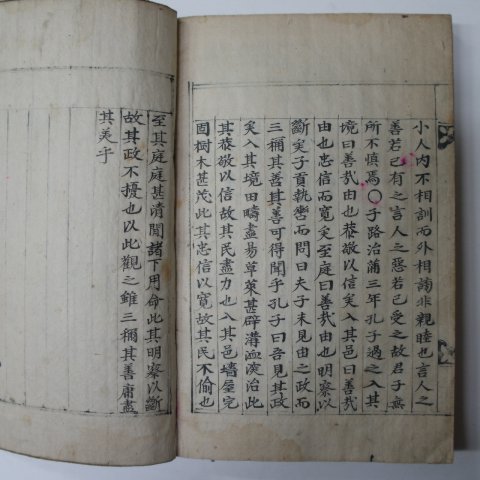 小人內不相訓而外相謗非親睦也言人之
善若己有之言人之惡若己受之故君子無
所不愼焉○子路治蒲三年孔子過之入其
境曰善哉由也恭敬以信矣入其邑曰善哉
由也忠信而寬矣至庭曰善哉由也明察以
斷矣子貢執轡而問曰夫子未見由之政而
三稱其善其善可得聞乎孔子曰吾見其政
矣入其境田疇盡易草萊甚辟溝洫深治此
其恭敬以信故其民盡力也入其邑墻屋完
固樹木甚茂此其忠信以寬故其民不偷也
至其庭庭甚清閒諸下用命此其明察以斷
故其政不擾也以此觀之雖三稱其善庸盡
其美乎